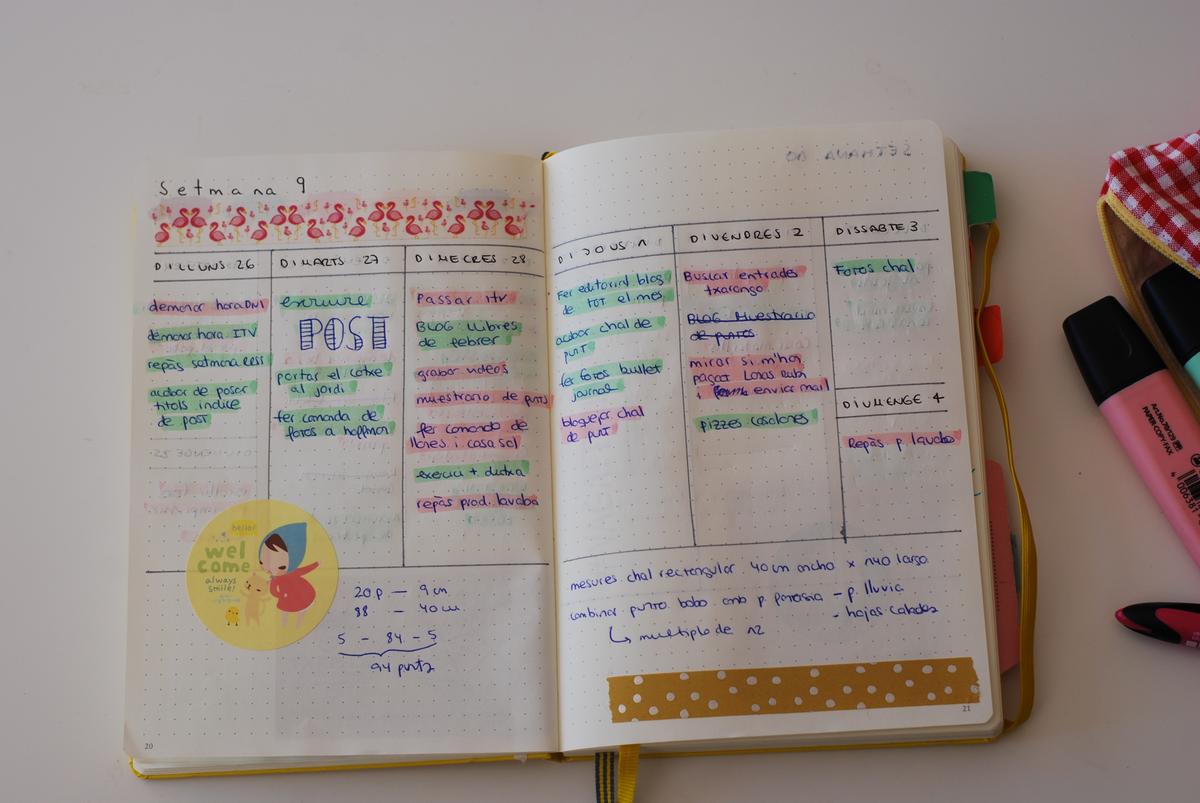 Setmana 9
DILLUNS 26
demanar hora DNI
demanar hora ITV
repàs setmana
acabar de posar
titols índice
de post
DIMARTS 27
escriure
POST
portar el cotxe
al jordi
fer comanda de
fotos a hoffman
DIMECRES 28
Passar itv
BLOG: llibres
de febrer
grabar videos
muestrario de punts
fer comanda de
llanes i casasol
exercici + dutxa
repàs prod. lavabo
hello!
wel
come
always
smile!
20 p — 9 cm
88 — 40 cm
5 - 84 - 5
94 punts
20
DIJOUS 1
Fer editorial blog
de TOT el mes
acabar chal de
punt
fer fotos bullet
journal
bloquejar chal
de punt
DIVENDRES 2
Buscar entrades
txarango
BLOG Muestrario
de puntos
mirar si m'han
pagat Lanas Rubi
i enviar mail
pizzes casolanes
DISSABTE 3
Fotos chal
DIUMENGE 4
Repàs p. lavabo
mesures chal rectangular. 40 cm ancho x 140 largo.
combinar punto bobo amb p. fantasia – p. lluvia
- hojas caladas
multiplo de 12
21
SETMANA 10
PAPER-COPY-FAX